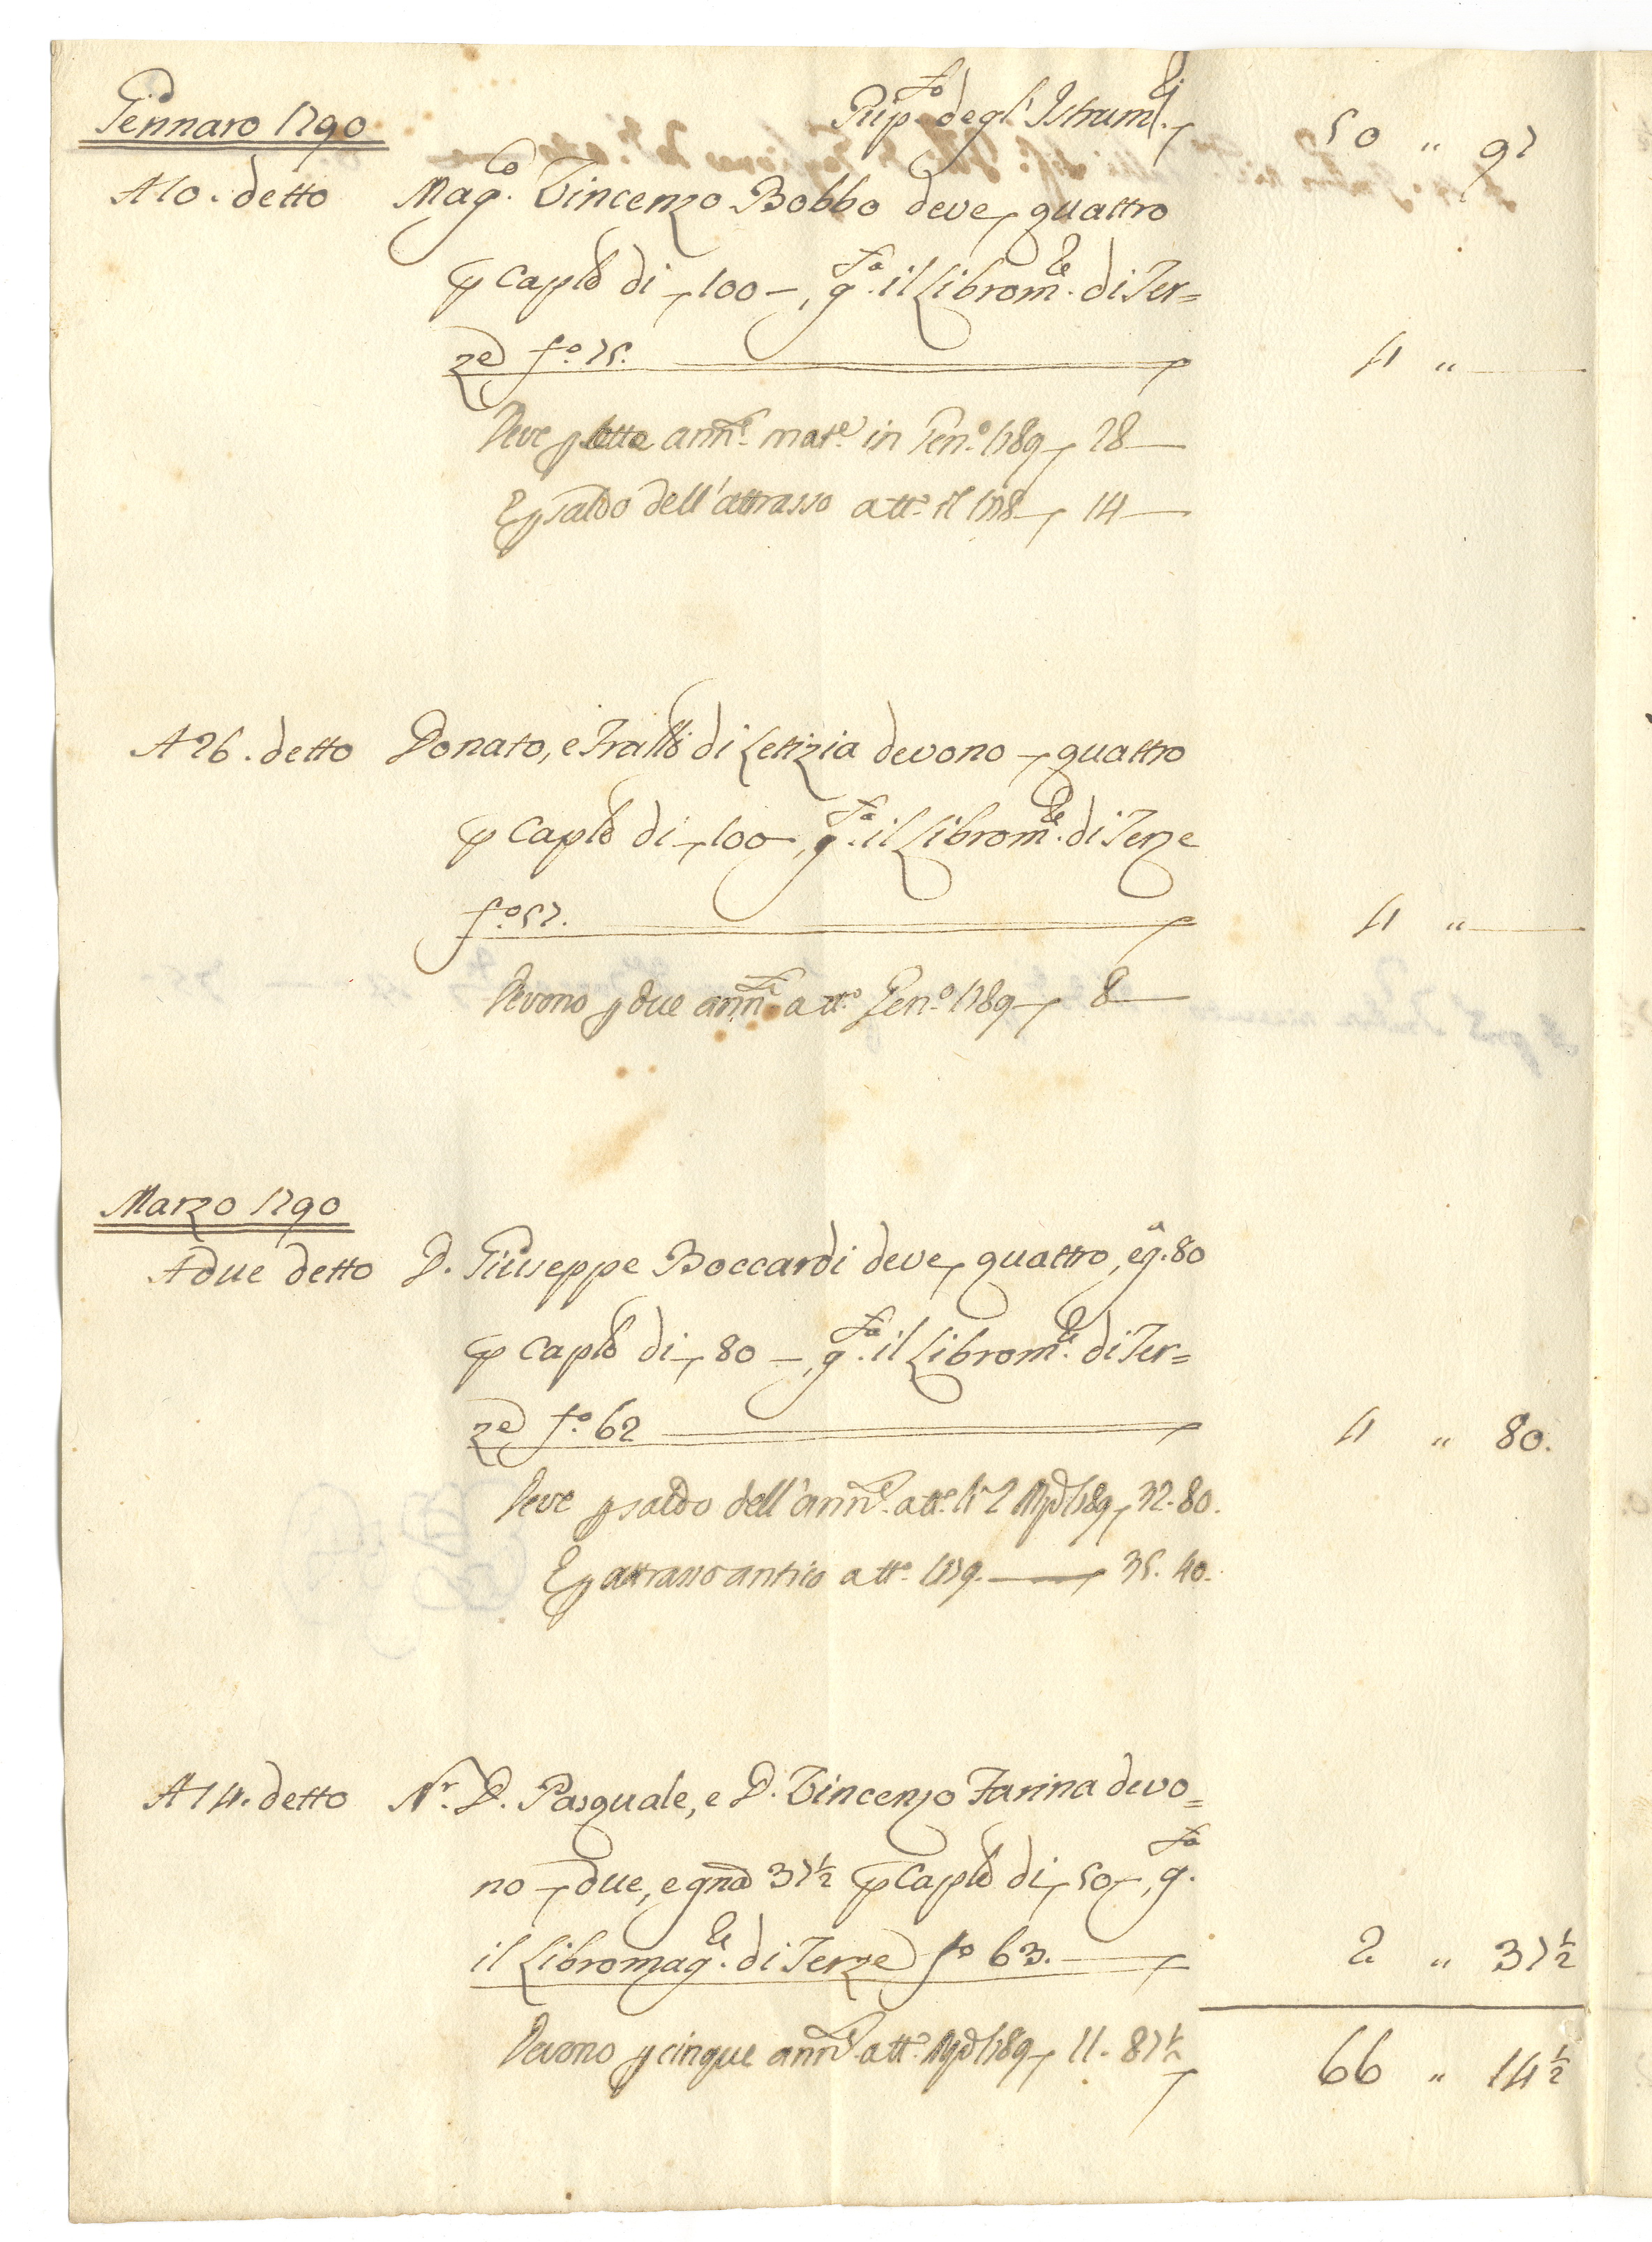 Rip.to degl'Istrum.ti 50 " 97
Gennaro 1790
A 10. detto Mag.co Vincenzo Bobbo deve quattro
p Cap.le di 100 –, q.ta il Libro m.re di Ter=
ze f.o 75. 4 " —
Deve p sette ann.e mat.e in Gen.o 1789 28 —
E p saldo dell'attrasso att.o il 1778 14 —
A 26. detto Donato, e Fralli di Letizia devono quattro
p Cap.le di 100 –, q.ta il Libro m.re di Terze
f.o 57. 4 " —
Devono p due ann.e att.o Gen.o 1789 8 —
Marzo 1790
A due detto D. Giuseppe Boccardi deve quattro, e g.a 80
p Cap.le di 80 –, q.ta il Libro m.re di Ter=
ze f.o 62 4 " 80.
Deve p saldo dell'ann.e att.e li 2 Mzo 1789 32. 80.
E p attrasso antico att.o 1779. — 35. 40.
A 14. detto N.r D. Pasquale, e D. Vincenzo Farina devo=
no due, e gna 37½ p Cap.le di 50 –, q.ta
il Libro mag.re di Terze f.o 63. — 2 " 37½
Devono p cinque ann.e att.o Mzo 1789 11. 87½
66 " 14½